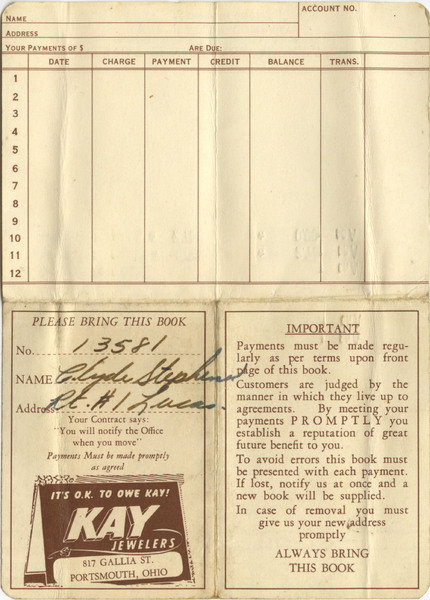 NAME
ACCOUNT NO.
ADDRESS
YOUR PAYMENTS OF $ ARE DUE:
DATE CHARGE PAYMENT CREDIT BALANCE TRANS.
1
2
3
4
5
6
7
8
9
10
11
12
PLEASE BRING THIS BOOK
No. 13581
NAME Clyde Stephenson
Address Rt. #1 Lucas.
Your Contract says:
"You will notify the Office
when you move"
Payments Must be made promptly
as agreed
IT'S O.K. TO OWE KAY!
KAY
JEWELERS
817 GALLIA ST.
PORTSMOUTH, OHIO
IMPORTANT
Payments must be made regu-
larly as per terms upon front
page of this book.
Customers are judged by the
manner in which they live up to
agreements. By meeting your
payments PROMPTLY you
establish a reputation of great
future benefit to you.
To avoid errors this book must
be presented with each payment.
If lost, notify us at once and a
new book will be supplied.
In case of removal you must
give us your new address
promptly
ALWAYS BRING
THIS BOOK